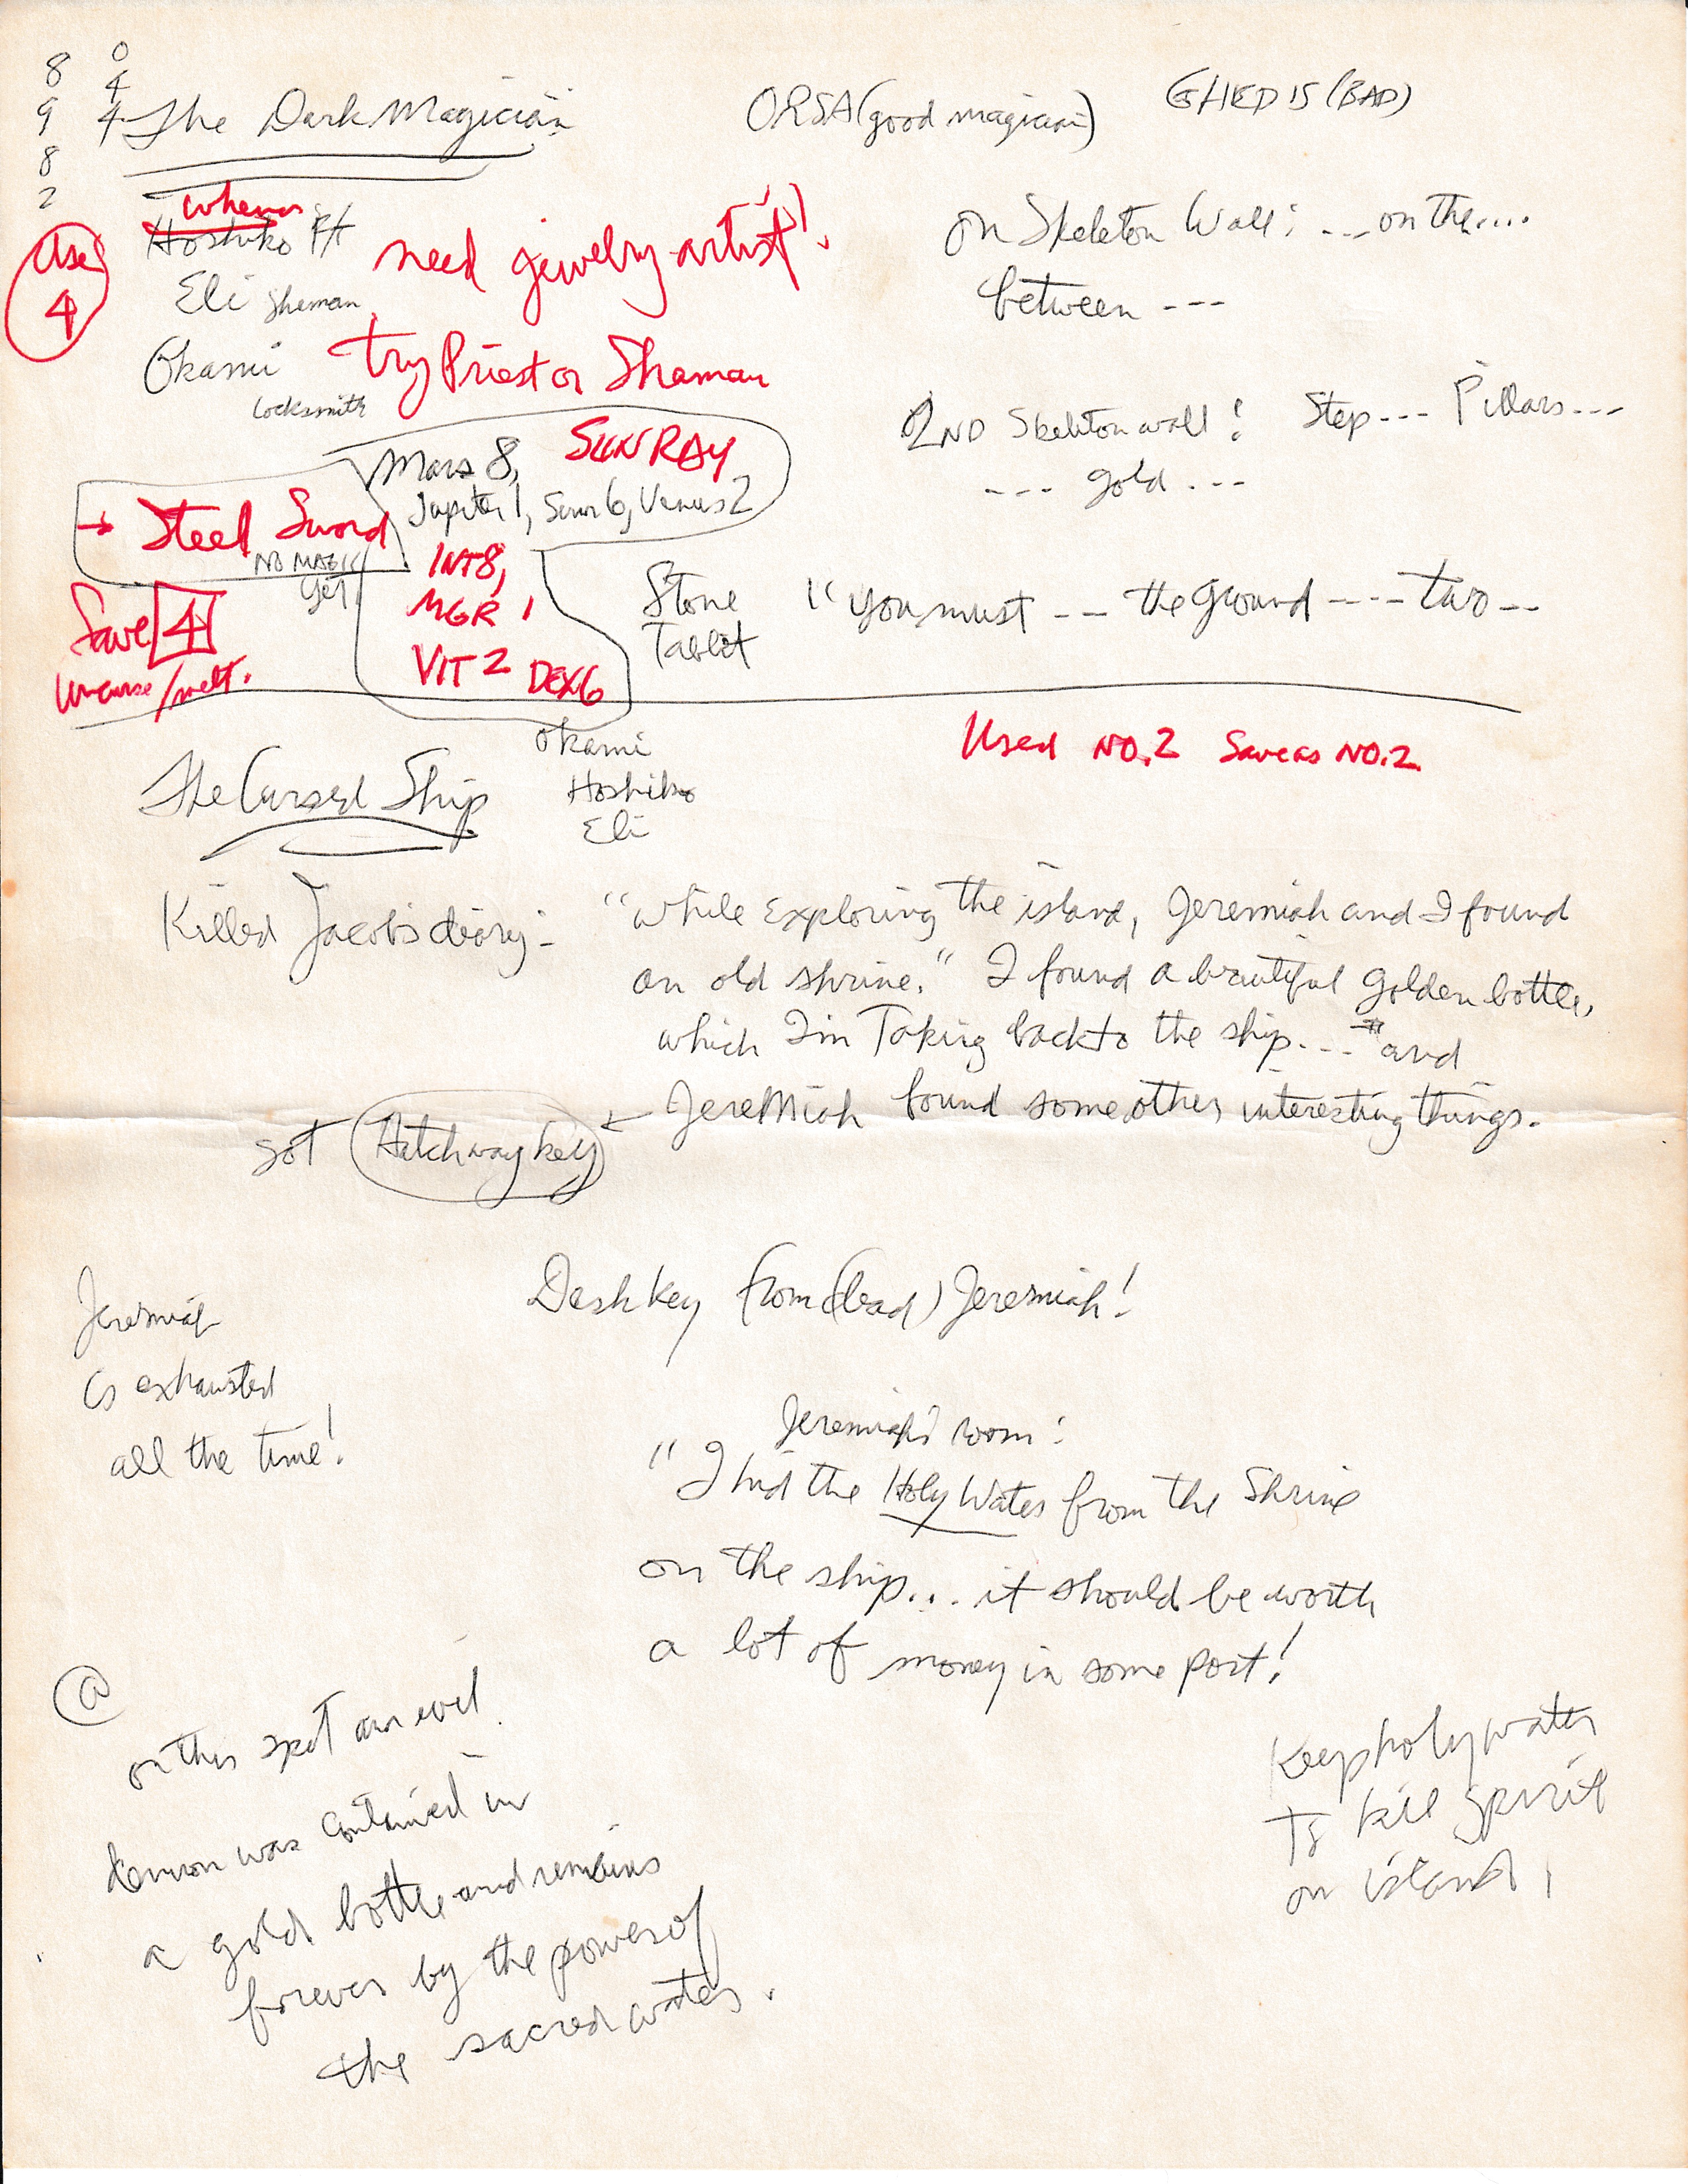 8 0
9 4
8 4
2
The Dark Magician
ORSA (good magician)
GHED IS (BAD)
Use
4
Hoshiko
Eli Shaman
Okami
Locksmith
need jewelry artist!
try Priest or Shaman
On Skeleton Wall: --- on the....
between ---
2ND Skeleton wall: Step --- Pillars ---
--- gold ---
Mars 8, SUN RAY
Jupiter 1, Sun 6, Venus 2
→ Steel Sword
NO MAGIC
yet
INT 8,
MGR 1
VIT 2 DEX 6
Save 4
Uncurse/melt.
Stone
Tablet
"you must --- the ground ---- two --
Used NO.2 Save as NO.2
The Cursed Ship
Okami
Hoshiko
Eli
Killed Jacob's diary -
"while exploring the island, Jeremiah and I found
an old shrine." I found a beautiful golden bottle,
which I'm Taking back to the ship... and
Jeremiah found some other interesting things.
got Hatchway key ←
Desk key from (dead) Jeremiah!
Jeremiah
is exhausted
all the time!
Jeremiah's room:
"I hid the Holy Water from the Shrine
on the ship... it should be worth
a lot of money in some port!
@
on this spot an evil
demon was contained in
a gold bottle and remains
forever by the power of
the sacred water.
Keep holy water
To kill spirit
on island!